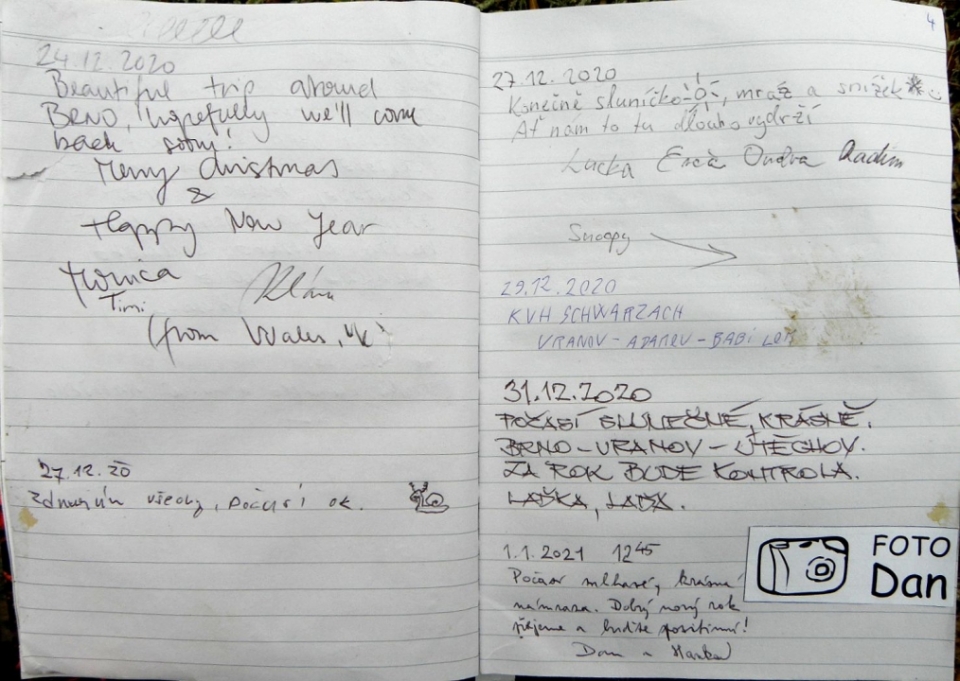 24.12.2020
Beautiful trip around
BRNO, hopefully we'll come
back
Merry Christmas
&
Happy New Year
Timi
(from Wales, UK)
27.12.20
Zdravím všechny, počasí ok.
4
27.12.2020
Konečně sluníčko, mráz a snížek
Ať nám to tu dlouho vydrží
Lucka Ondra Radim
Snoopy
29.12.2020
KVH SCHWARZACH
VRANOV - ADAMOV - BABÍ LOM
31.12.2020
POČASÍ SLUNEČNÉ, KRÁSNĚ.
BRNO - VRANOV - ÚTĚCHOV.
ZA ROK BUDE KONTROLA.
LAĎKA, LAĎA.
1.1.2021 12 45
Počasí mlhavé, krásná
námraza. Dobrý nový rok
přejeme a buďte pozitivní!
Dan a Hanka
FOTO
Dan